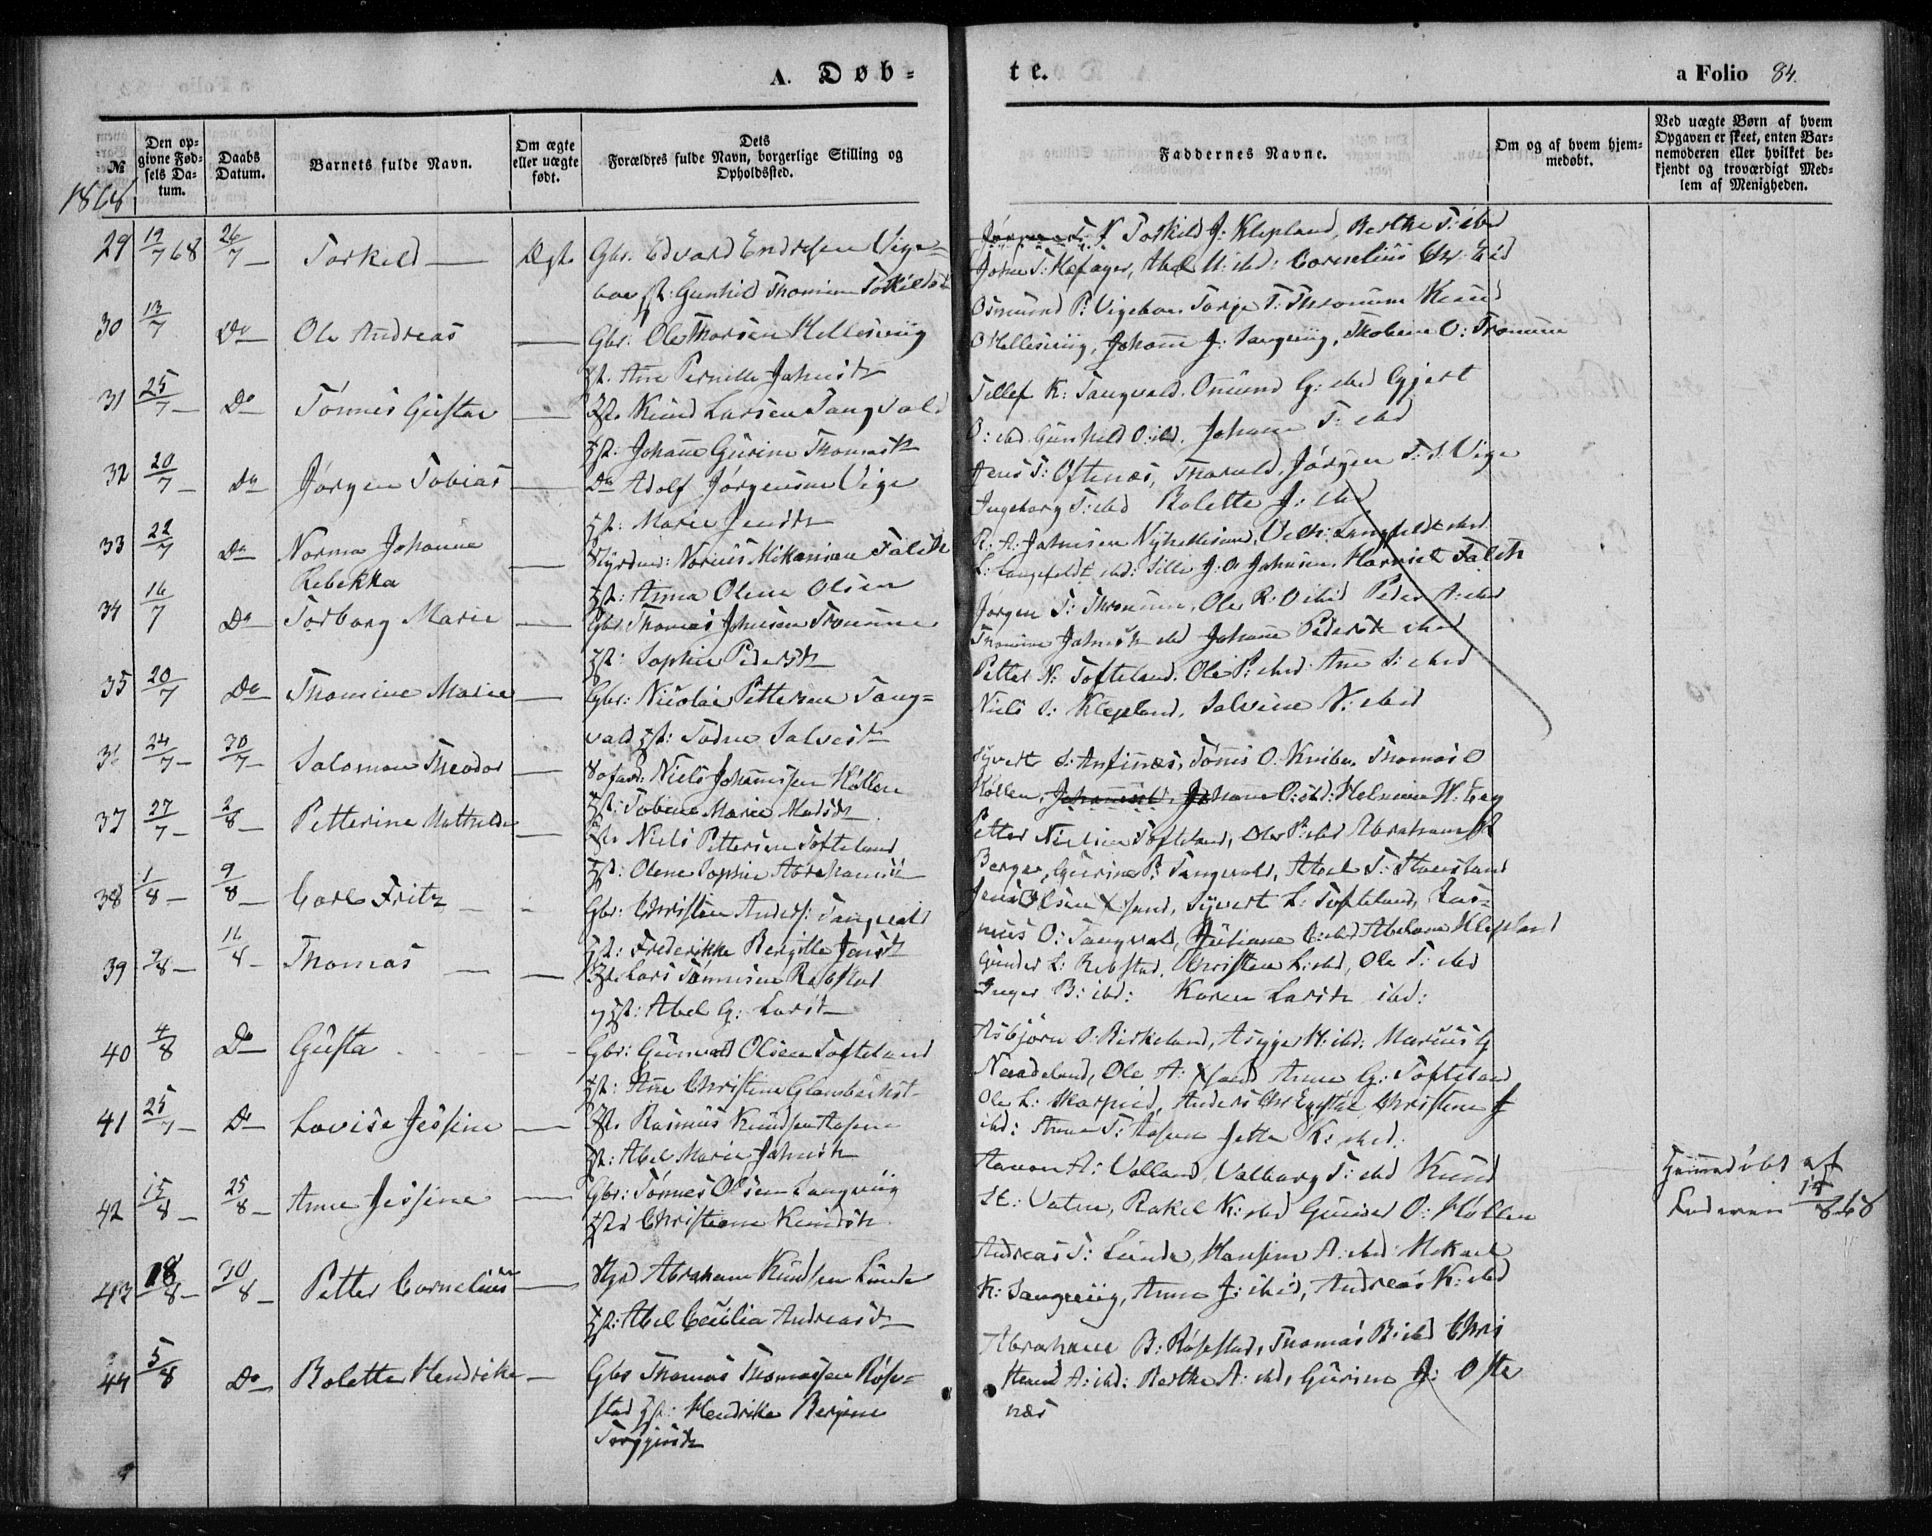 A. Døb-
te.
a Folio 84.
№
Den op-
givne Fød-
sels Da-
tum.
Daabs
Datum.
Barnets fulde Navn.
Om ægte
eller uægte
født.
Dets
Forældres fulde Navn, borgerlige Stilling og
Opholdssted.
Faddernes Navne.
Om og af hvem hjem-
medøbt.
Ved uægte Børn af hvem
Opgaven er skeet, enten Bar-
nemoderen eller hvilket be-
kjendt og troværdigt Med-
lem af Menigheden.
1868
29 19/7 68 26/7 Torkild Ægte Gbr. Edvard Endresen Vige-
boe Hst: Gunhild Thomine Torkildsd
Torkild J: Klepland, Berthe T: ibd
John T: Høfager, Abel ibd: Cornelius Chr: Eid
30 13/7 Do Ole Andreas Gbr: Ole Thorsen Hellesviig
Hst. Ane Pernille Jahnsdt
Osmund P: Vigeboe Torje T: Thronum
O Hellesviig, Johanne J: Langviig, Thobine O: Tronum
31 25/7 Do Tønnes Gustav Hst. Knud Larsen Tangvald
Hst: Johanne Gurine Thomasdt
Tellef K: Tangvald. Omund G: ibd Gjert
O: ibd Gunhild O: ibd. Johanne T: ibd
32 20/7 Do Jørgen Tobias Do Adolf Jørgensen Vige
Hst: Marie Jensdt
Jens T: Oftenæs, Jørgen T: S: Vige
Ingeborg T: ibd Rolette J: ibd
33 22/7 Do Norma Johanne
Rebekka
Styrmd: Norius Mikanian Falch
Hst: Anna Olene Olsen
R: A: Jahnsen Nyhellesund, Langfeldt ibd
L: Langfeldt ibd: Sille J. O Jahnsen. Harriet Falch
34 16/7 Do Torborg Marie Gbr Thomas Johnsen Tronum
Hst: Sophie Pedersdt
Jørgen T: Thronum, Ole R: O ibid Peder A: ibd
Thomine Jahnsdt ibd Johanne Pedersdt ibid
35 20/7 Do Thomine Marie Gbr: Nicolai Pettersen Tang-
vald Hst: Todne Salvesdt
Petter N: Tofteland. Ole P: ibid Ane S: ibid
Niels S: Klepland, Salvine N: ibid
36 24/7 30/7 Salomon Theodor Søfard: Niels Johannessen Høllen
Hst: Tobine Marie Madsdt
Syvert S: Anfinnæs, Tønnis O. Thomas O
Høllen, Johanne O: ibd: Helmine H: Eeg
37 27/7 2/8 Petterine Mathilde Hst. Niels Pettersen Tofteland
Hst: Olene Sophie Abrahamsd
Petter Nielsen Tofteland, Ole P: ibd Abraham K
Berge, Gurine P: Tangvald, Abel T: Stausland
38 1/8 9/8 Carl Fritz Gbr: Christen Anders: Tangvald
Hst: Frederikke Bergitte Jensdt
Jens Olsen Xsand, Syvert L: Tofteland, Ras-
mus O: Tangvald, Juliane O: ibd Abelone Klepland
39 2/8 16/8 Thomas Hst. Lars Tønnesen Rebstad
Hst: Abel G: Larsdt
Gunder L: Rebstad, Christen L: ibd, Ole T: ibd
Inger B: ibd: Karen Larsdt ibd:
40 4/8 Do Gusta Gbr: Gunvald Olsen Tofteland
Hst: Ane Christine Glambeksdt
Asbjørn O: Birkeland, Asgje H: ibd: Marius G
Naadeland, Ole A: Xsand Anne G: Tofteland
41 25/7 Do Lovise Jessine Hst. Rasmus Knudsen Aasen
Hst: Abel Marie Jahnsdt
Ole L: Harpied, Anders Chr Egestøe Christine J
ibd: Anne T: Aasen Jette K: ibid:
42 15/8 25/8 Anne Jessine Gbr: Tønnes Olsen Langviig
Hst: Christiane Knudsdt
Haavor A: Valland, Valborg T: ibd Knud
St: Vatne, Rakel K: ibd Gunder O: Høllen
Hjemmedøbt af
Faderen 15/8 68
43 18/8 30/8 Petter Cornelius Styrd Abraham Knudsen Lunde
Hst: Abel Cecilia Andreasdt
Andreas T: Lunde, Hansine A: ibd Mikael
K: Langviig, Anne J: ibid, Andreas K: ibd
44 5/8 Do Rolette Hendrike Gbr Thomas Thomassen Røse-
stad Hst: Hendrike Bergine
Torgjersdt
Abraham B: Røsestad, Thomas B: ibd Chris
Berthe A: ibd, Gurine J: Ofte
næs